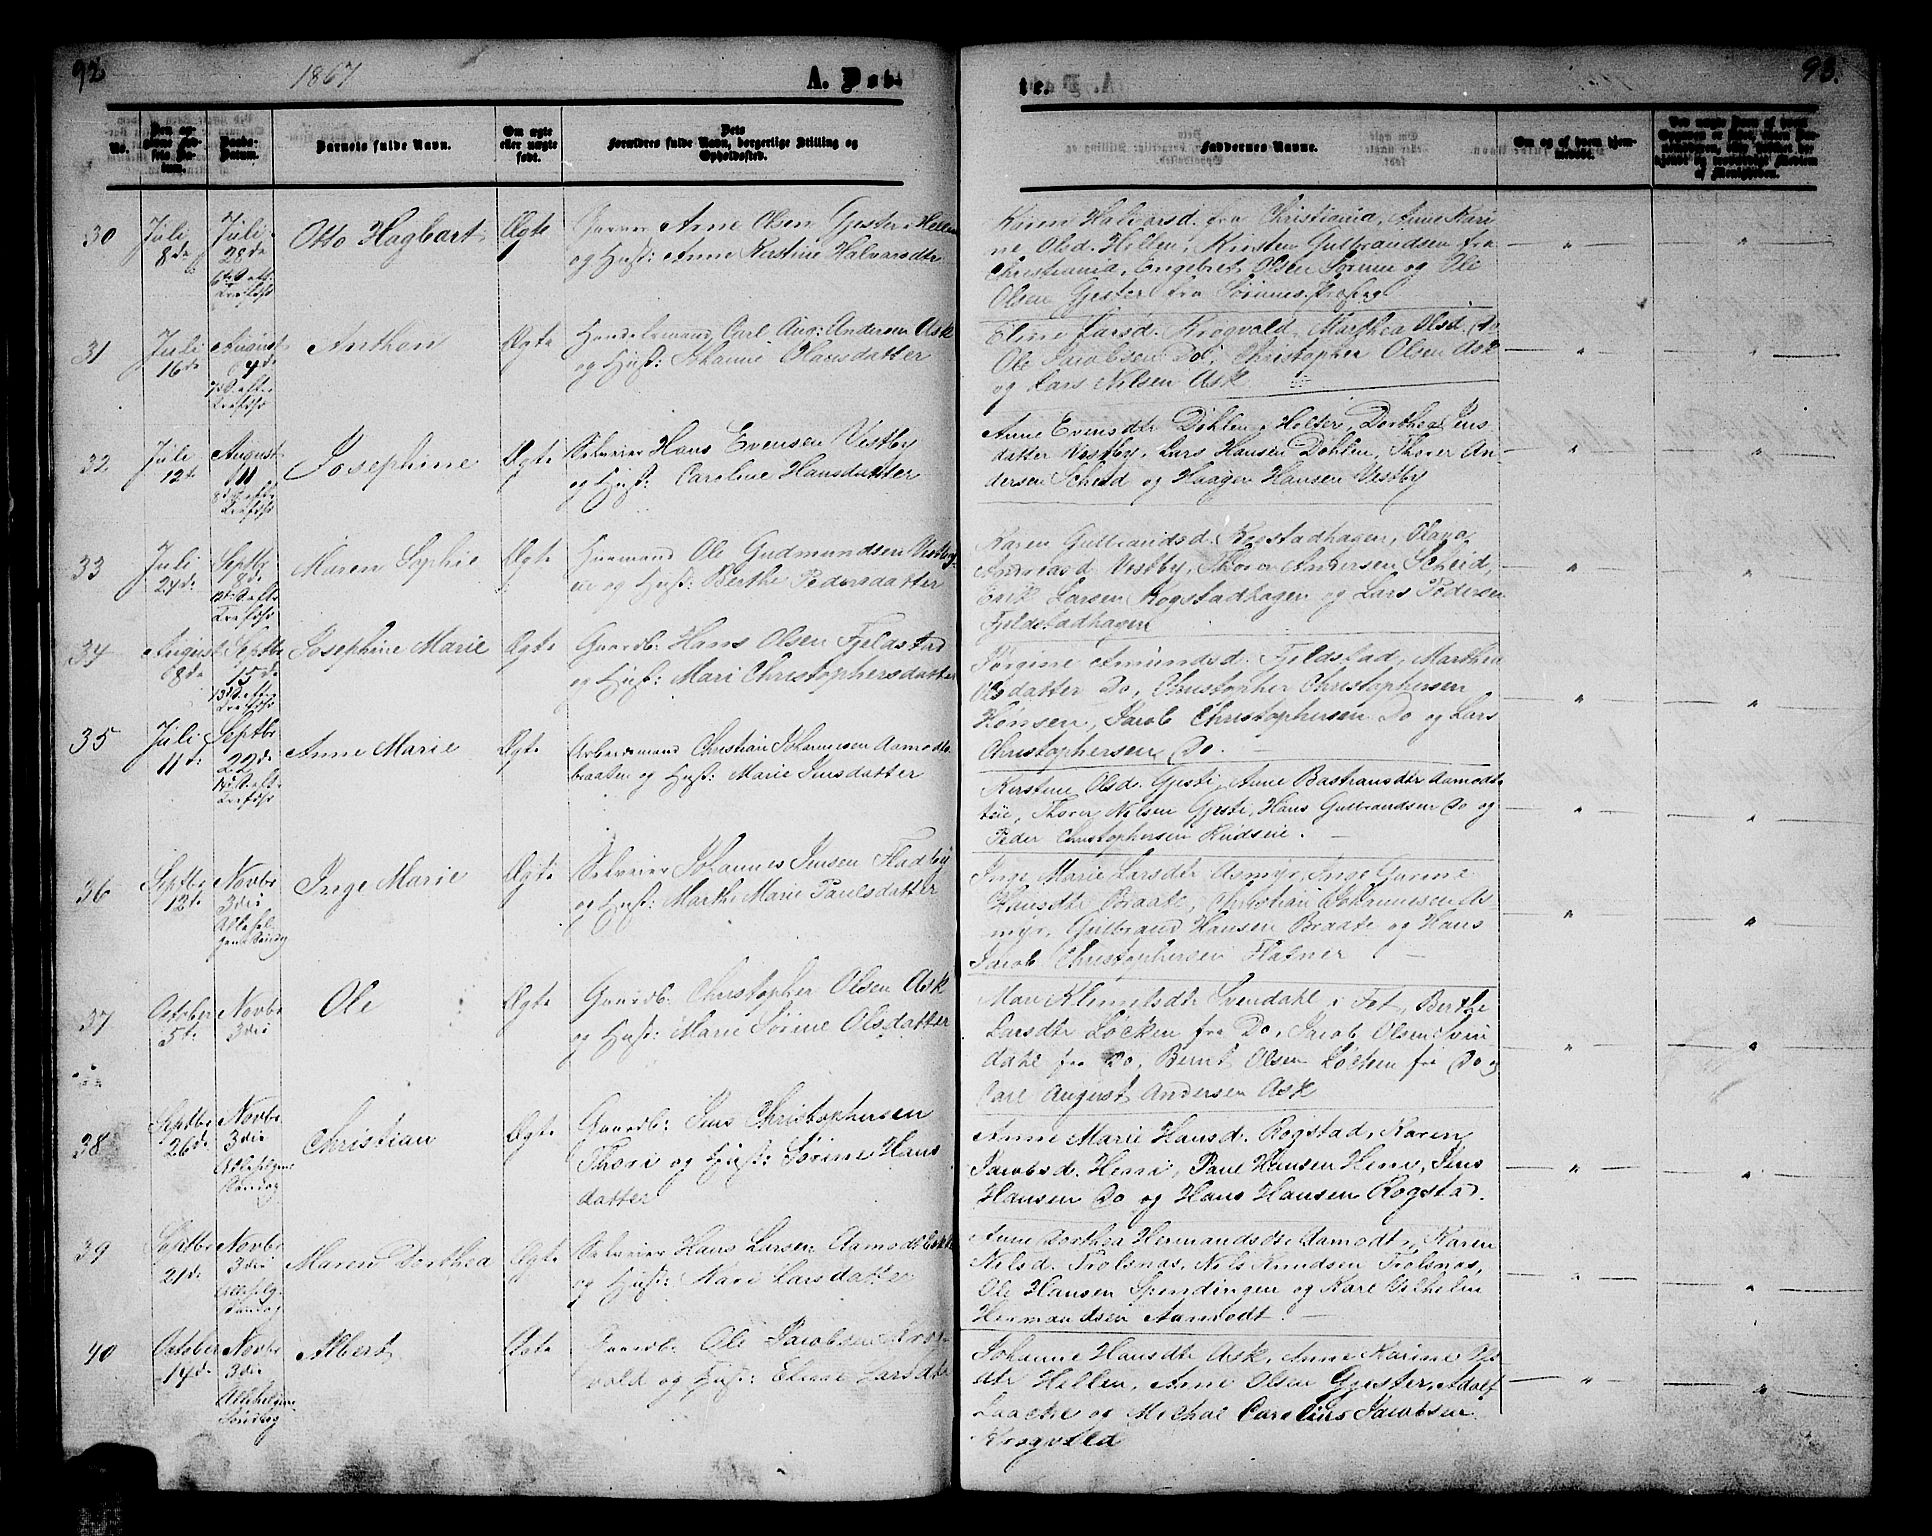 92
1867
A. Døb-
No.
Barnets fulde Navn.
Om ægte eller uægte født.
Forældres fulde Navn, borgerlige Stilling og Opholdssted.
30
Juli 8de
Juli 28de
Otto Hagbart
Ægte
Arne Olsen Gjester i Hellen
og Hust: Anne Kirstine Halvorsdtr
31
Juli 16de
August 4de
Anthon
Ægte
Handelsmand Carl Aug: Andersen Ask
og Hust: Johanne Hansdatter
32
Juli 12te
August 11
Josephine
Ægte
Selveier Hans Evensen Vestby
og Hust: Caroline Hansdatter
33
Juli 24de
Septbr 8de
Maren Sophie
Ægte
Huusmand Ole Gudmundsen Vestby-
eie og Hust: Berthe Pedersdatter
34
August 8de
Septbr 15de
Josephine Marie
Ægte
Gaardb: Hans Olsen Fjeldstad
og Hust: Mari Christophersdatter
35
Juli 11te
Septbr 22de
Anne Marie
Ægte
Arbeidsmand Christian Johannesen Aamodt-
braaten og Hust: Marie Jensdatter
36
Septbr 12te
Novbr 3die
Inge Marie
Ægte
Selveier Johannes Jensen Fladby
og Hust: Marthe Marie Paulsdatter
37
October 5te
Novbr 3die
Ole
Ægte
Gaardb: Christopher Olsen Ask
og Hust: Marie Sørine Olsdatter
38
Septbr 26de
Novbr 3die
Christian
Ægte
Gaardb: Jens Christophersen
Thori og Hust: Sørine Hans
datter
39
Septbr 21de
Novbr 3die
Maren Dorthea
Ægte
Selveier Hans Larsen Aamodt
og Hust: Kari Larsdatter
40
October 14de
Novbr 3die
Allehelgens Søndag
Albert
Ægte
Gaardb: Ole Jacobsen Krog-
vold og Hust: Eline Larsdtr
93.
te.
Faddernes Navne.
Karen Halvorsd. fra Christiania, Anne Kari
ne Olsd. Hellen, Kirsten Gulbrandsen fra
Christiania, Engebret Olsen Sørum og Ole
Olsen Gjester fra Sørums Præstegj.
Eline Larsd. Krogvold, Marthea Olsd. Do
Ole Jacobsen Do, Christopher Olsen Ask
og Lars Nilsen Ask
Anne Evensdtr Døhlen i Holter, Dorthea Jens
datter Vestby, Lars Hansen Døhlen, Thorer An-
dersen Scheid og Haagen Hansen Vestby
Karen Gulbrandsd. Rogstadhagen, Olava
Andreasd Vestby, Thorer Andersen Scheid,
Erik Larsen Rogstadhagen og Lars Pedersen
Fjeldstadhagen
Jørgine Amundsd. Fjeldstad, Marthea
Olsdatter Do, Christopher Christophersen
Hønsen, Jacob Christophersen Do og Lars
Christophersen Do.
Kirstine Olsd. Gjesti, Anne Bastiansdtr Aamodt-
eie, Thorer Nilsen Gjesti, Hans Gulbrandsen Do og
Peder Christophersen Rudseie.
Inge Marie Larsdtr Asmyr, Inge Gurine
Hansdtr Braate, Christian Johannesen As
myr, Gulbrand Hansen Braate og Hans
Jacob Christophersen Flatner
Mari Klemetsdtr Svendahl i Fet, Berthe
Larsdtr Løcken fra Do, Jacob Olsen Sven
dahl fra Do, Bernt Olsen Løcken fra Do og
Carl August Andersen Ask
Anne Marie Hansd. Rogstad, Karen
Jacobsd. Henni, Paul Hansen Henni, Jens
Hansen Do og Hans Hansen Rogstad.
Anne Dorthea Hermandsdtr Aamodt, Karen
Nilsd. Trolsnas, Nils Knudsen Trolsnas,
Ole Hansen Spendingen og Karl Vilhelm
Hermandsen Aamodt.
Johanne Hansdtr Ask, Anne Karine Ols
dtr Hellen, Arne Olsen Gjester, Adolf
Laacke og Michal Carolius Jacobsen
Krogvold